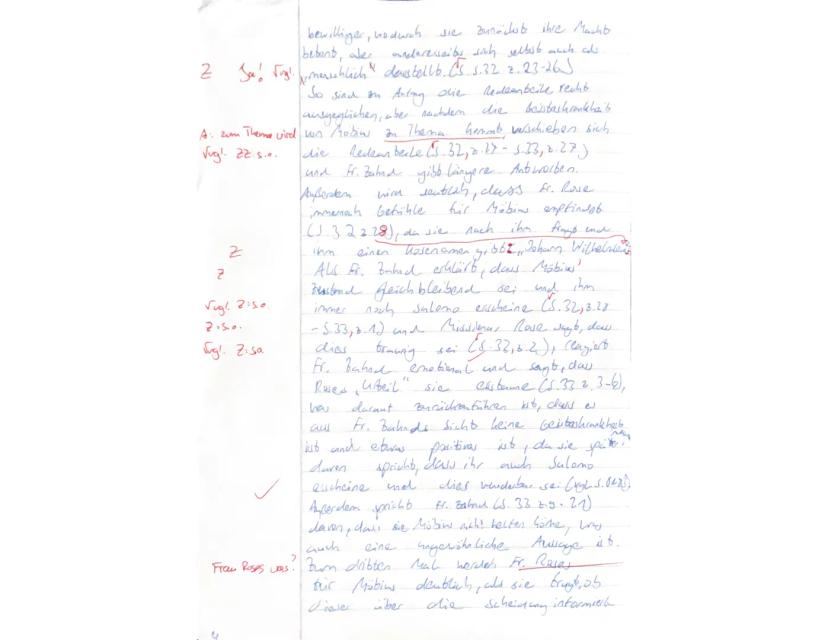 bewilliger, wodurch sie zunächst ihre Macht
betont, aber andererseits sich selbst auch als
Z Ja! Vgl. "menschlich" darstellt. (S. 32 Z. 23-26)
So sind zu Anfang die Redeanteile recht
ausgeglichen, aber nachdem die Geisteskrankheit
A: zum Thema wird von Möbius zu Thema kommt, verschieben sich
Vgl. ZZ s.o. die Redeanteile (S. 32, z. 27 - S. 33, z. 27)
und Fr. Zahnd gibt längere Antworten.
Außerdem wird deutlich, dass Fr. Rose
immernoch Gefühle für Möbius empfindet
(S. 32 z 28), da sie nach ihm fragt und
Z ihm einen Kosenamen gibt: „Johann Wilhelmlein"
Z Als Fr. Zahnd erklärt, dass Möbius'
Zustand gleichbleibend sei und ihm
Vgl. Z: s.o. immer noch Salomo erscheine (S. 32, z. 28
Z: s.o. - S. 33, z. 1) und Missionar Rose sagt, dass
Vgl. Z: s.o. dies traurig sei (S. 33, z. 2), reagiert
Fr. Zahnd emotional und sagt, das
Roses „Urteil" sie erstaune (S. 33 z. 3-6),
was darauf zurückzuführen ist, dass es
aus Fr. Zahnds Sicht keine Geisteskrankheit
ist und etwas positives ist, da sie später
davon spricht, dass ihr auch Salomo
erscheine und dies wunderbar sei
Außerdem spricht Fr. Zahnd (S. 33 z. 9-21)
davon, dass sie Möbius nicht heilen könne, was
auch eine ungewöhnliche Aussage ist.
Frau Roses was? Zum dritten Mal werden Fr. Roses
für Möbius deutlich, als sie fragt, ob
dieser über die Scheidung informiert